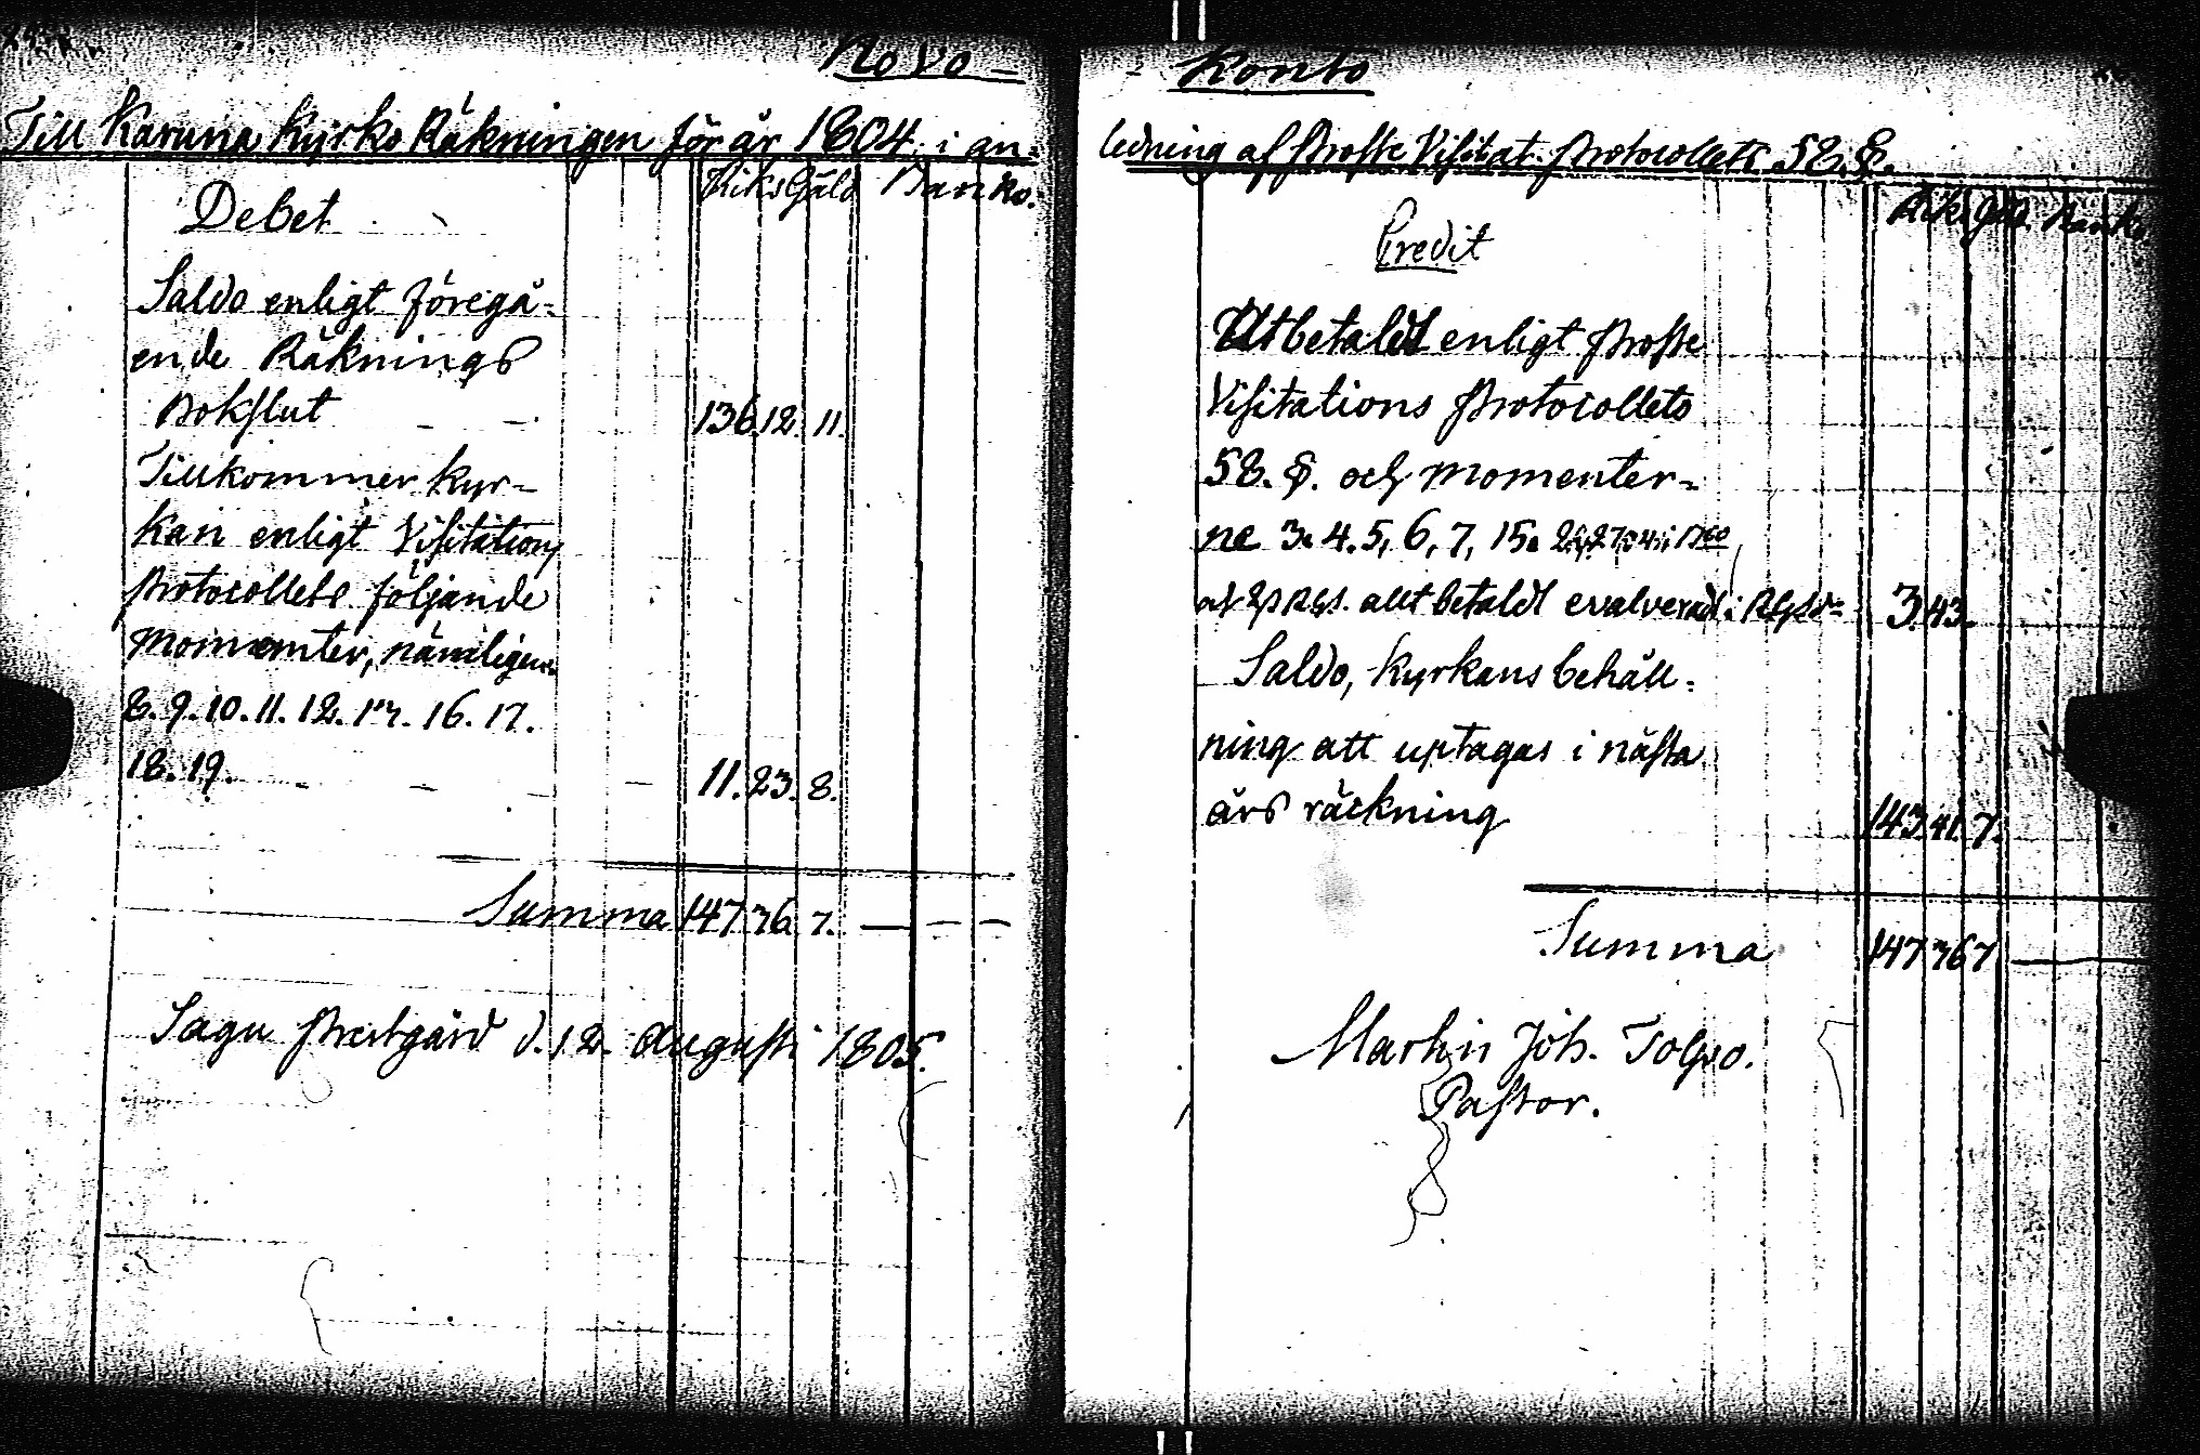 Novo-
Till Karuna Kyrko Räkningen för år 1804, i an-
Debet
Riks Gäld Banko.
Saldo enligt föregå-
ende Räknings
Bokslut - - 136.12. 11.
Tillkommer Kyr-
kan enligt Visitations
Protocollets följande
Momenter, nämligen
8. 9. 10. 11. 12. 13. 16. 17.
18. 19. - - - - 11. 23. 8.
Summa 147. 36. 7. - - -
Sagu Prestgård d. 12. Augusti 1805.
- Konto
ledning af Proste Visitat. Protocollets 58. §.
Credit
Riks Gäld Banko
Utbetaldt enligt Proste
Visitations Protocollets
58. §. och Momenter-
ne 3. 4. 5, 6, 7, 15.
allt betaldt evalveradt i 3. 43.
Saldo, Kyrkans behåll-
ning att uptagas i nästa
års räckning 143. 41. 7.
Summa 147 36 7
Martin Joh. Tolpo.
Pastor.